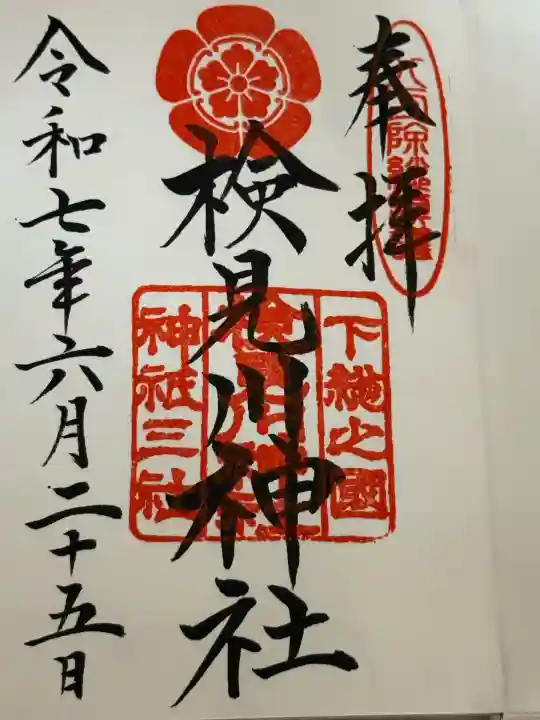 奉拝
検見川神社
下総之國
神祇三社
令和七年六月二十五日